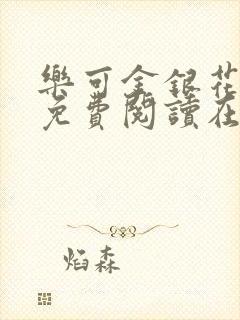 樂可金銀花
免費閱讀在
焰森